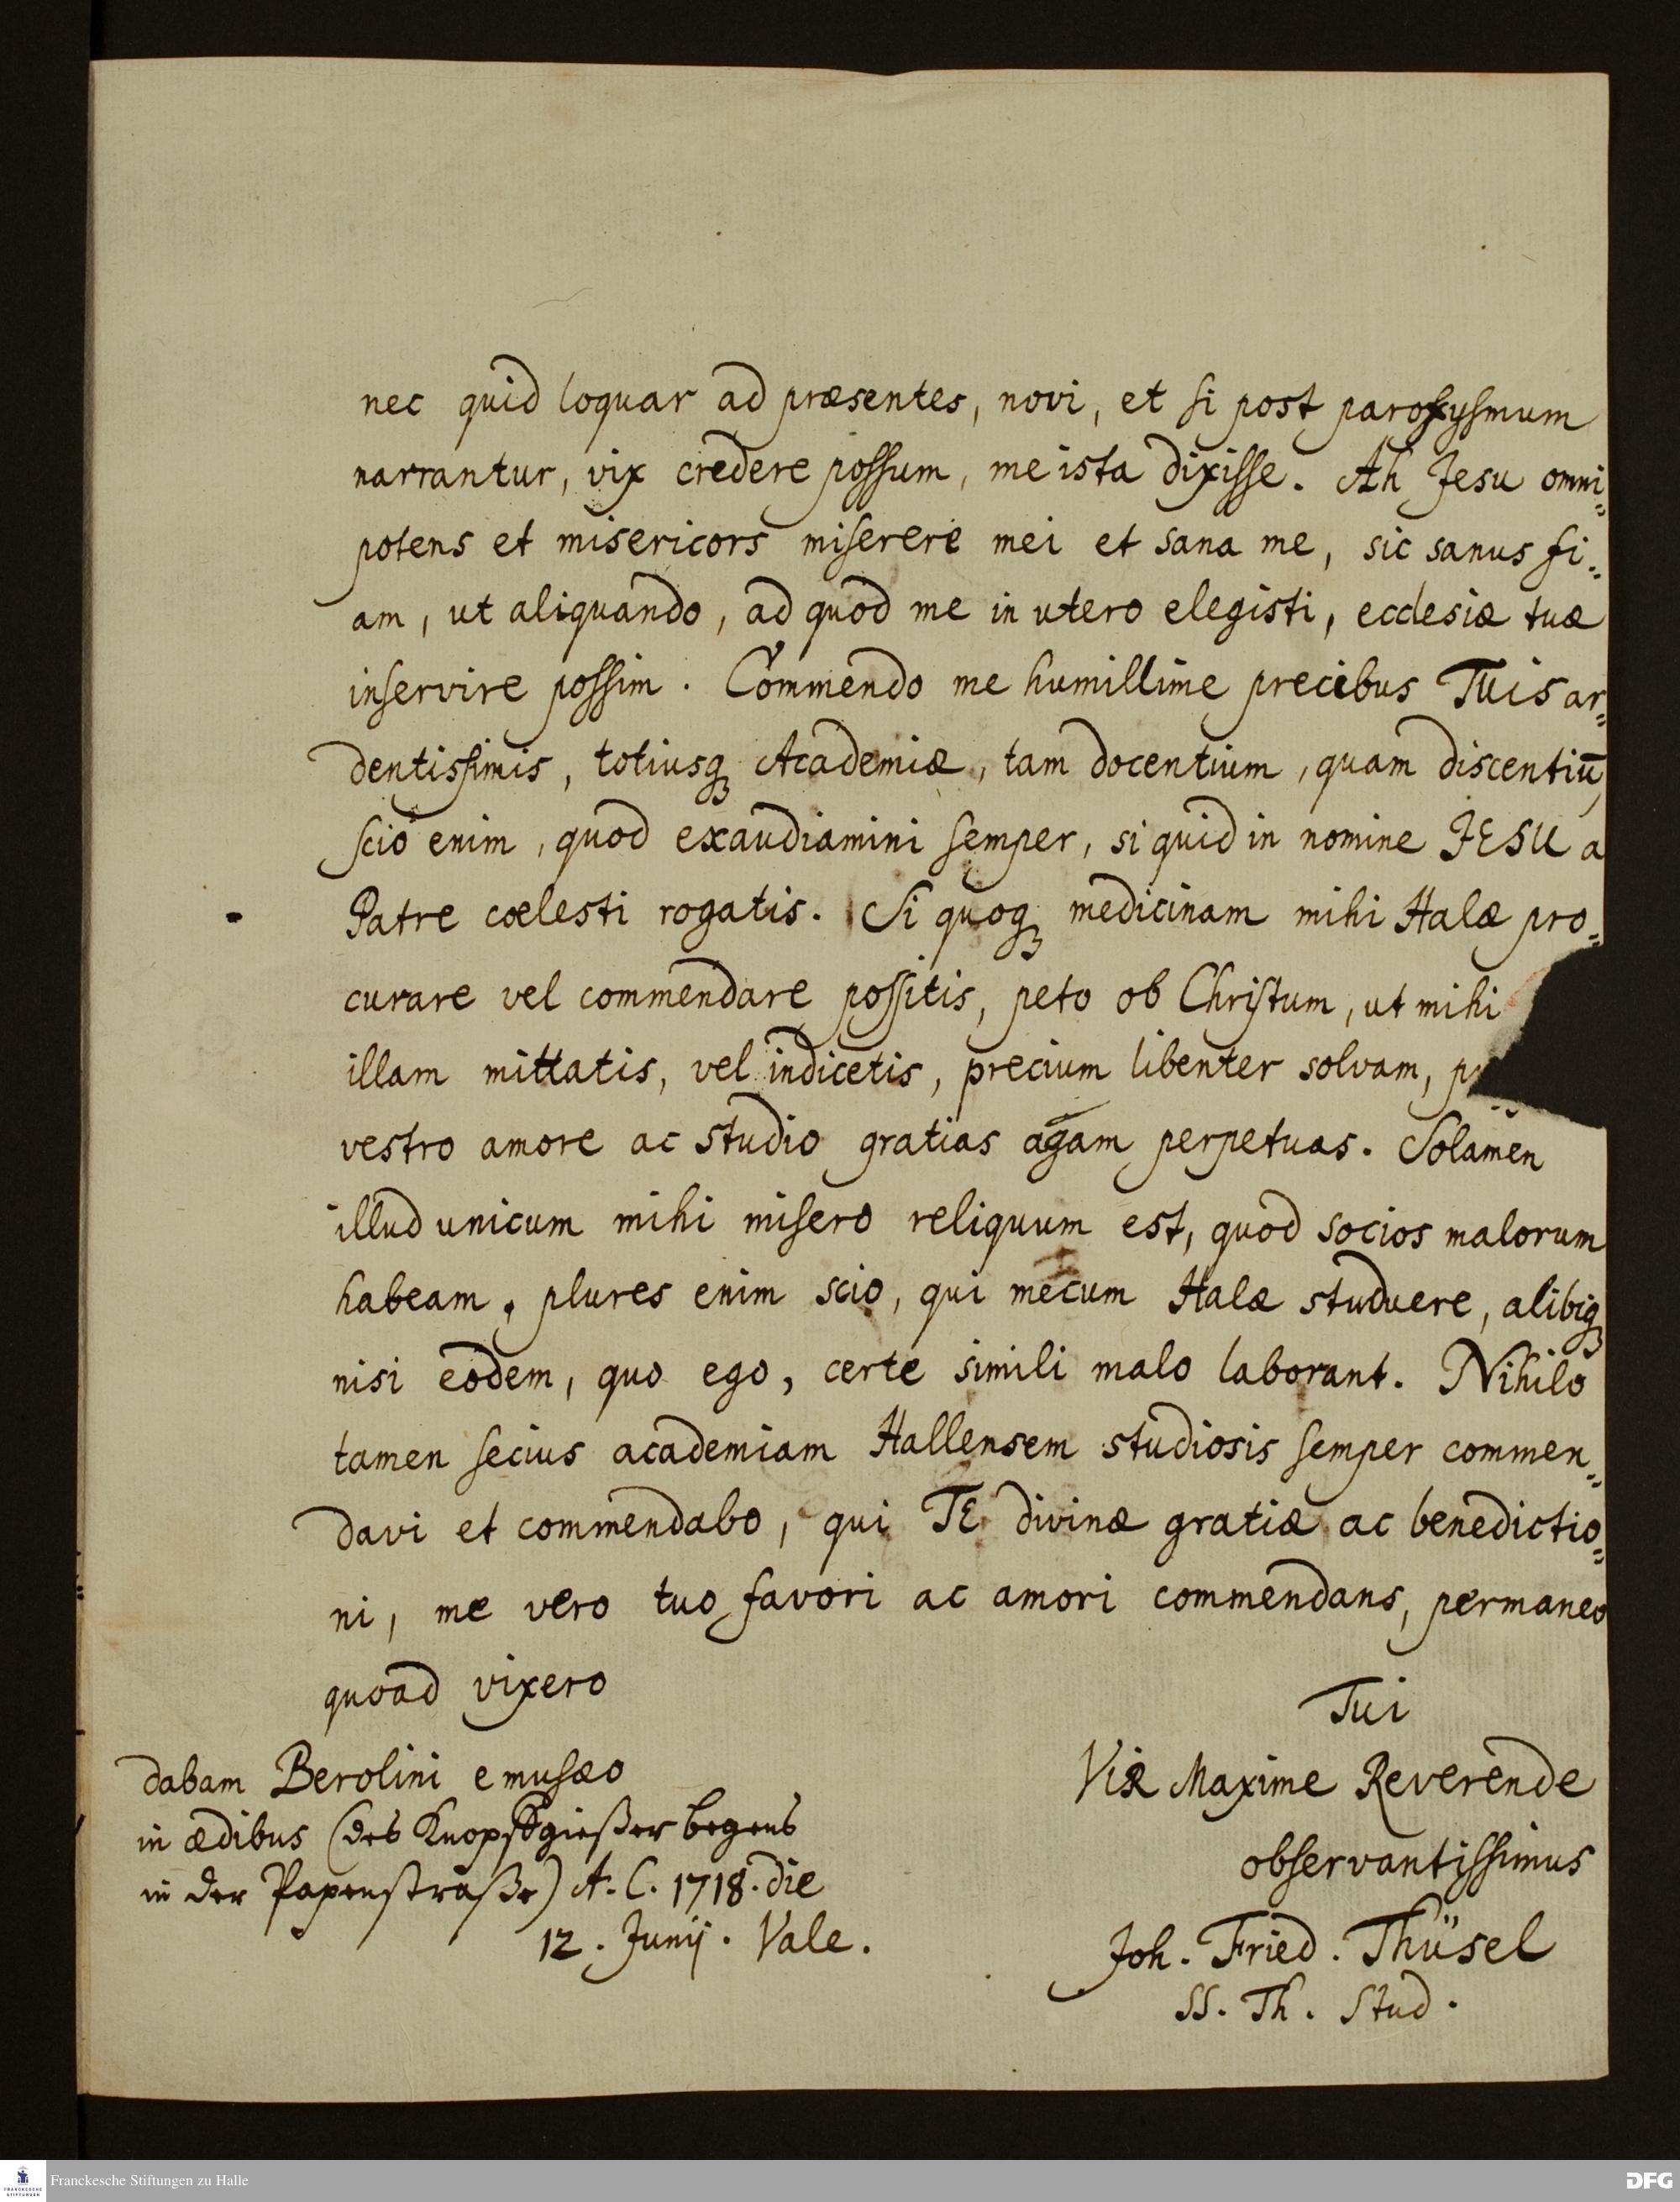 nec quid loquar ad præsentes, novi, et si post paroxysmum
narrantur, vix credere possum, me ista dixisse. Ah Jesu omni⸗
potens et misericors miserere mei et sana me, sic sanus fi⸗
am, ut aliquando, ad quod me in utero elegisti, ecclesiæ tuæ
inservire possim. Commendo me humillime precibus Tuis ar⸗
dentissimis, totiusq; Academiæ, tam docentium, quam discentiū,
scio enim, quod exaudiamini semper, si quid in nomine JESU a
Patre cœlesti rogatis. Si quoq; medicinam mihi Halæ pro⸗
curare vel commendare possitis, peto ob Christum, ut mihi
illam mittatis, vel indicetis, precium libenter solvam,
vestro amore ac studio gratias agam perpetuas. Solamen
illud unicum mihi misero reliquum est, quod socios malorum
habeam, plures enim scio, qui mecum Halæ studuere, alibiq;
nisi eodem, quo ego, certe simili malo laborant. Nihilo
tamen secius academiam Hallensem studiosis semper commen⸗
davi et commendabo, qui TE divinæ gratiæ ac benedictio⸗
ni, me vero tuo favori ac amori commendans, permaneo
quoad vixero
Tui
Vir Maxime Reverende
observantissimus
Joh. Fried. Thüsel
SS. Th. Stud.
dabam Berolini e musæo
in ædibus (des
in der Papenstraße) A. C. 1718. die
12. Junij. Vale.
Franckesche Stiftungen zu Halle
FRANCKESCHE
STIFTUNGEN
DFG